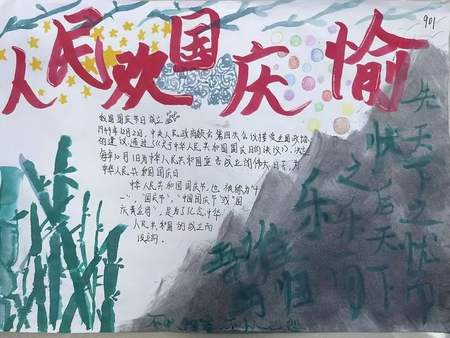 人民欢国庆愉
901
我国国庆节日成立
1949年12月2日,中央人民政府委员会第四次会议接受全国政协
的建议,通过了《关于中华人民共和国国庆日的决议》,决定
每年10月1日为中华人民共和国宣告成立的伟大日子,为
中华人民共和国国庆日
中华人民共和国国庆节,也被称为“十
一”、“国庆节”、“中国国庆节”或“国
庆黄金周”,是为了纪念中华
人民共和国的成立而
设立的。
先天下之忧而
忧后天下
之
乐
吾谁与归
不以物喜 不以己悲